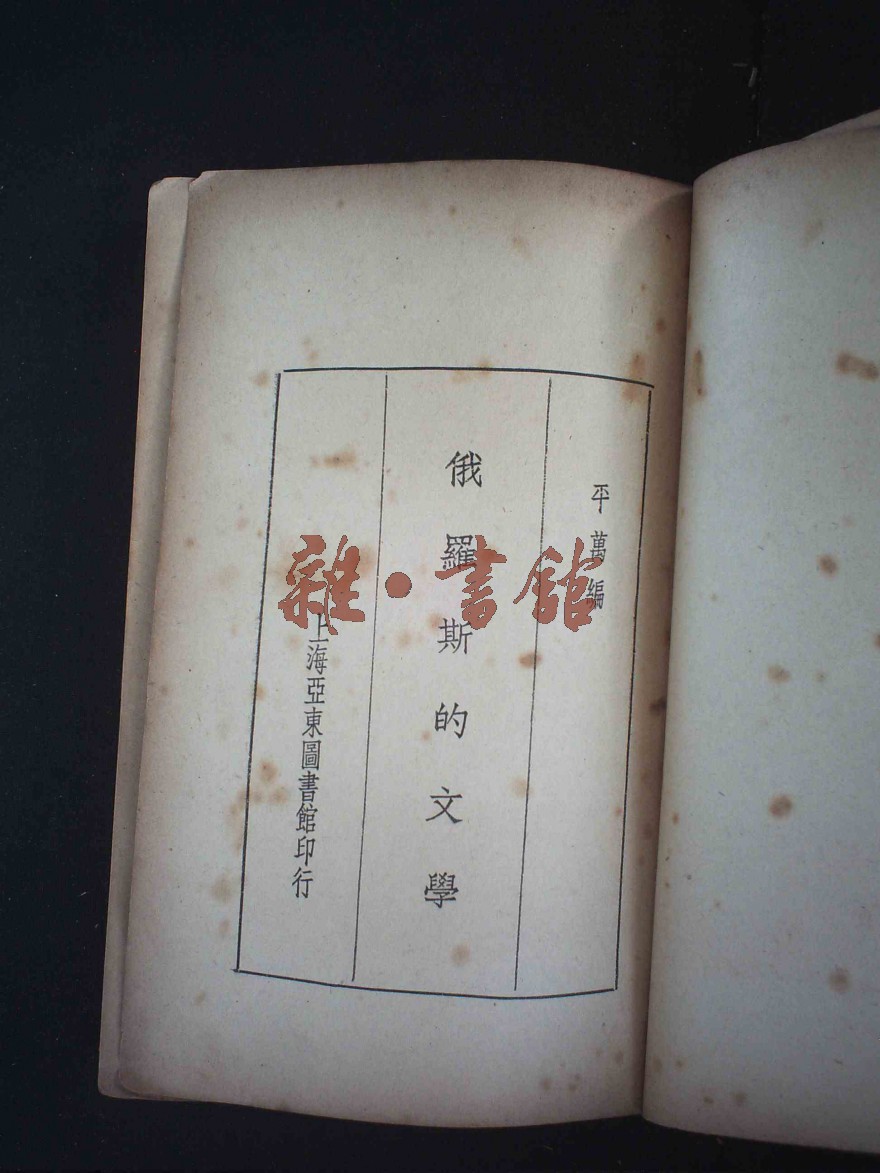 平萬編
俄羅斯的文學
上海亞東圖書館印行
雜·書館